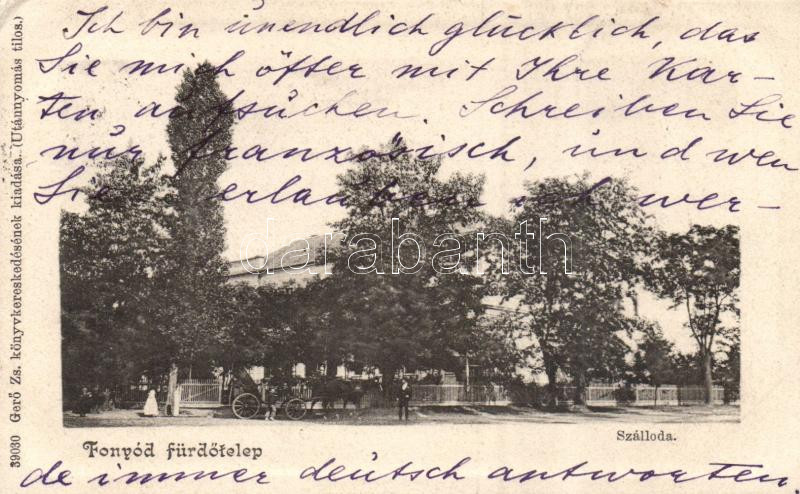 Ich bin unendlich glücklich, das
Sie mich öfter mit Ihre Kar-
ten aufsuchen. Schreiben Sie
nur französisch, und wen
Sie erlauben ich wer-
darabanth
Fonyód fürdőtelep
Szálloda.
de immer deutsch antworten.
39030 Gerő Zs. könyvkereskedésének kiadása. (Utánnyomás tilos.)